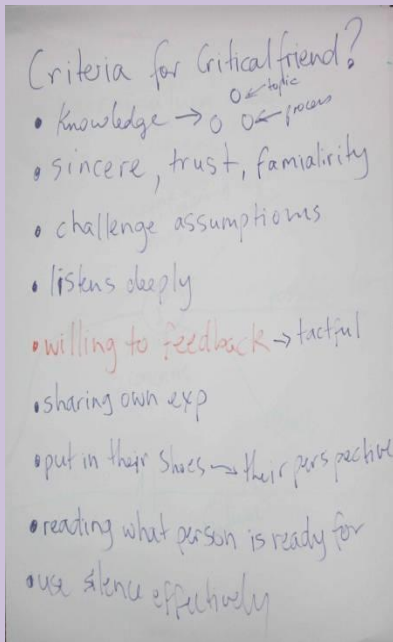 Criteria for Critical friend?
topic
• Knowledge → process
• sincere, trust, famialirity
• challenge assumptioms
• listens deeply
• willing to feedback → tactful
• sharing own exp
• put in their shoes → their perspective
• reading what person is ready for
• use silence effectively